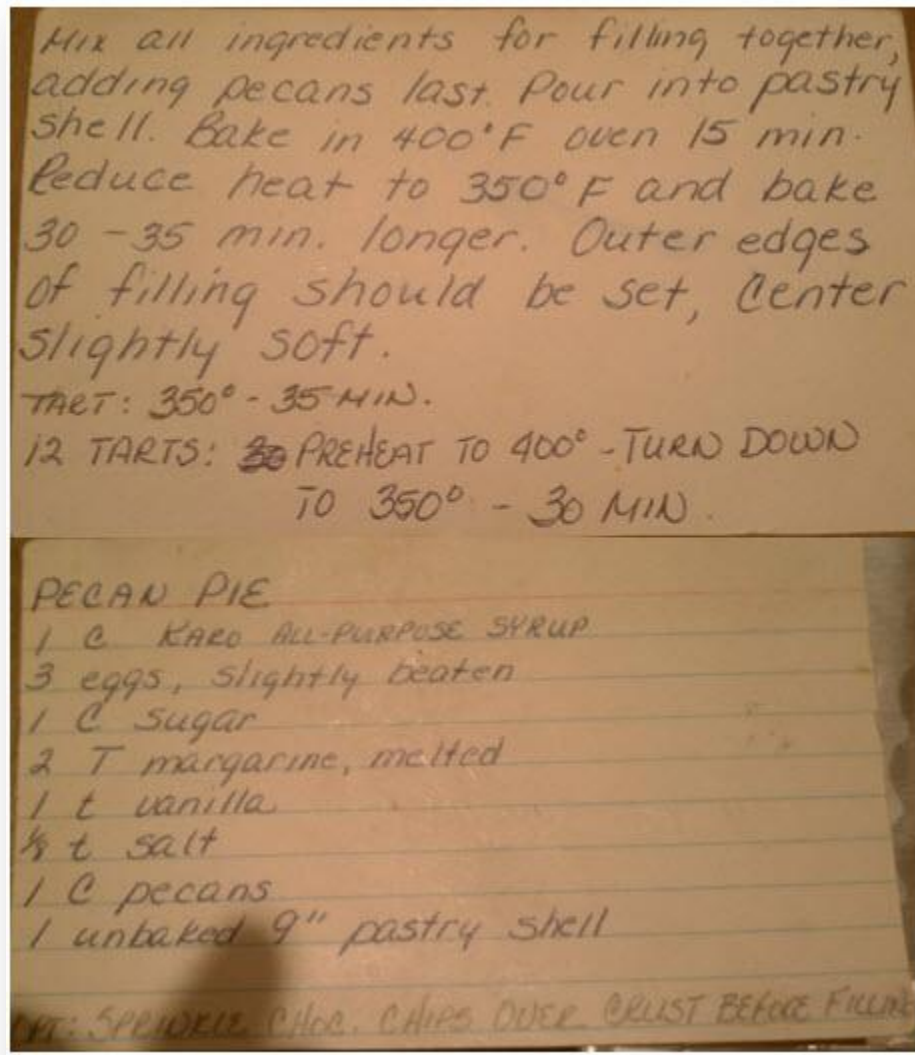 Mix all ingredients for filling together,
adding pecans last. Pour into pastry
shell. Bake in 400°F oven 15 min.
Reduce heat to 350°F and bake
30-35 min. longer. Outer edges
of filling should be set, Center
slightly soft.
TART: 350° - 35 MIN.
12 TARTS: PREHEAT TO 400° - TURN DOWN
TO 350° - 30 MIN.
PECAN PIE
1 C KARO ALL-PURPOSE SYRUP
3 eggs, slightly beaten
1 C sugar
2 T margarine, melted
1 t vanilla
1/8 t salt
1 C pecans
1 unbaked 9" pastry shell
OPT: SPRINKLE CHOC. CHIPS OVER CRUST BEFORE FILLING